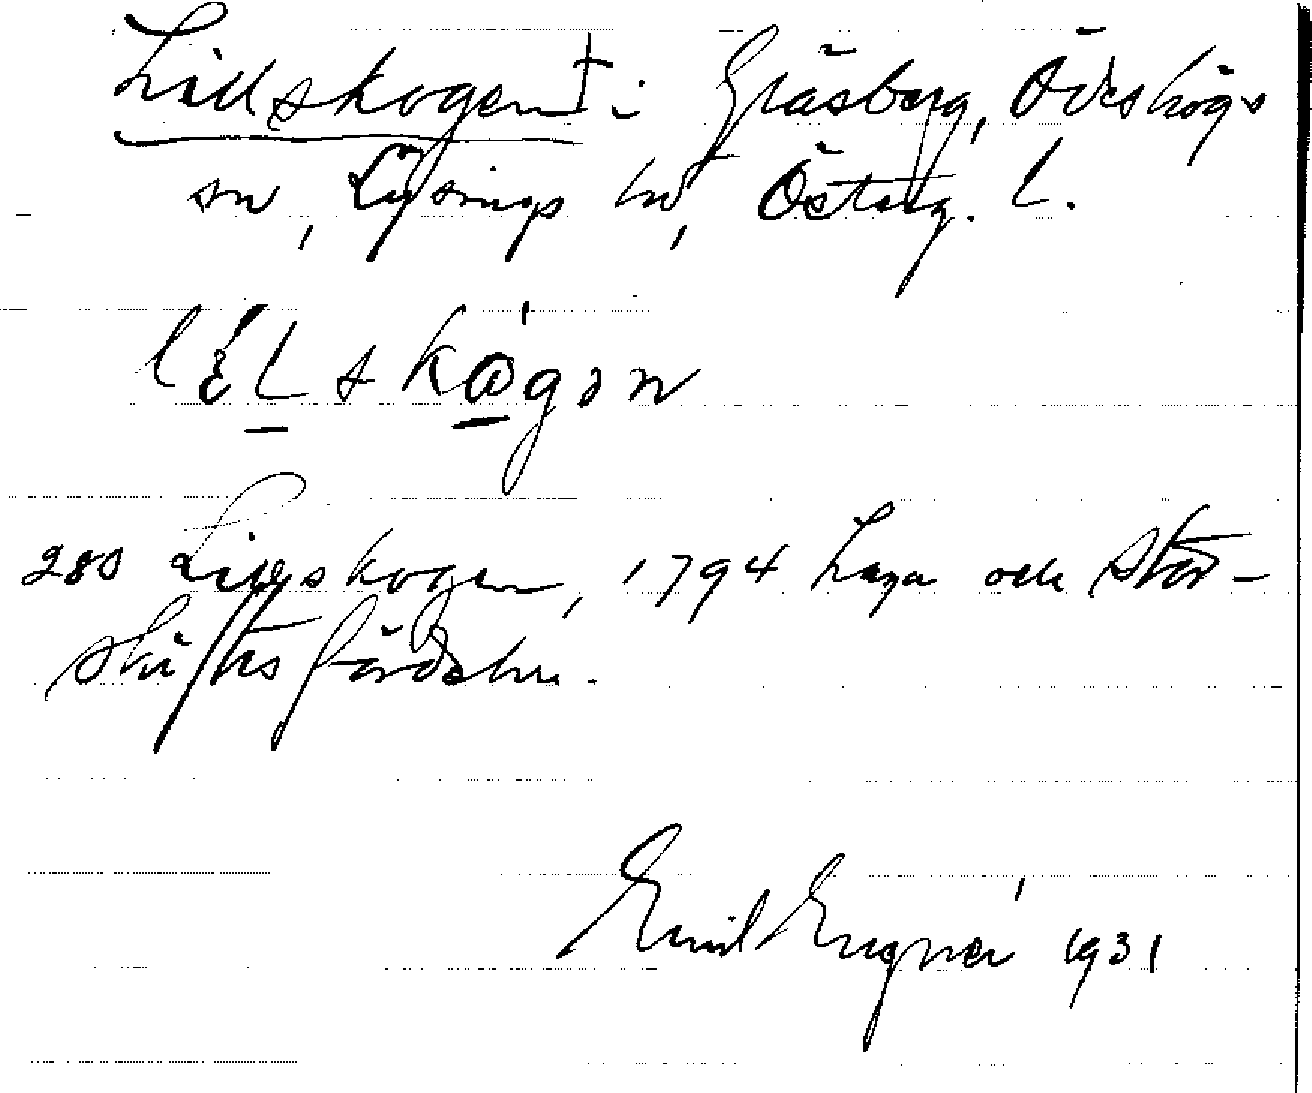 Lillskogen† i Gräsberg, Ödeshögs
sn, Lysings hd, Österg. l.
lɛ́Lskøgən
280 Lillskogen, 1794 Laga och Stor-
skiftesfördeln.
Emil Engnér 1931